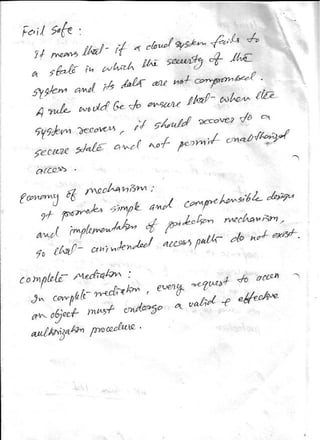 Fail Safe :
It means that - if a cloud system fails to
a state in which the security of the
system and its data are not compromised.
A rule would be to ensure that - when the
system recovers, it should recover to a
secure state and not permit unauthorized
access.
Economy of mechanism :
It promotes simple and comprehensible design
and implementation of protection mechanism,
so that - unintended access path do not exist.
Complete Mediation :
In complete mediation, every request to access
an object must undergo a valid & effective
authorization procedure.